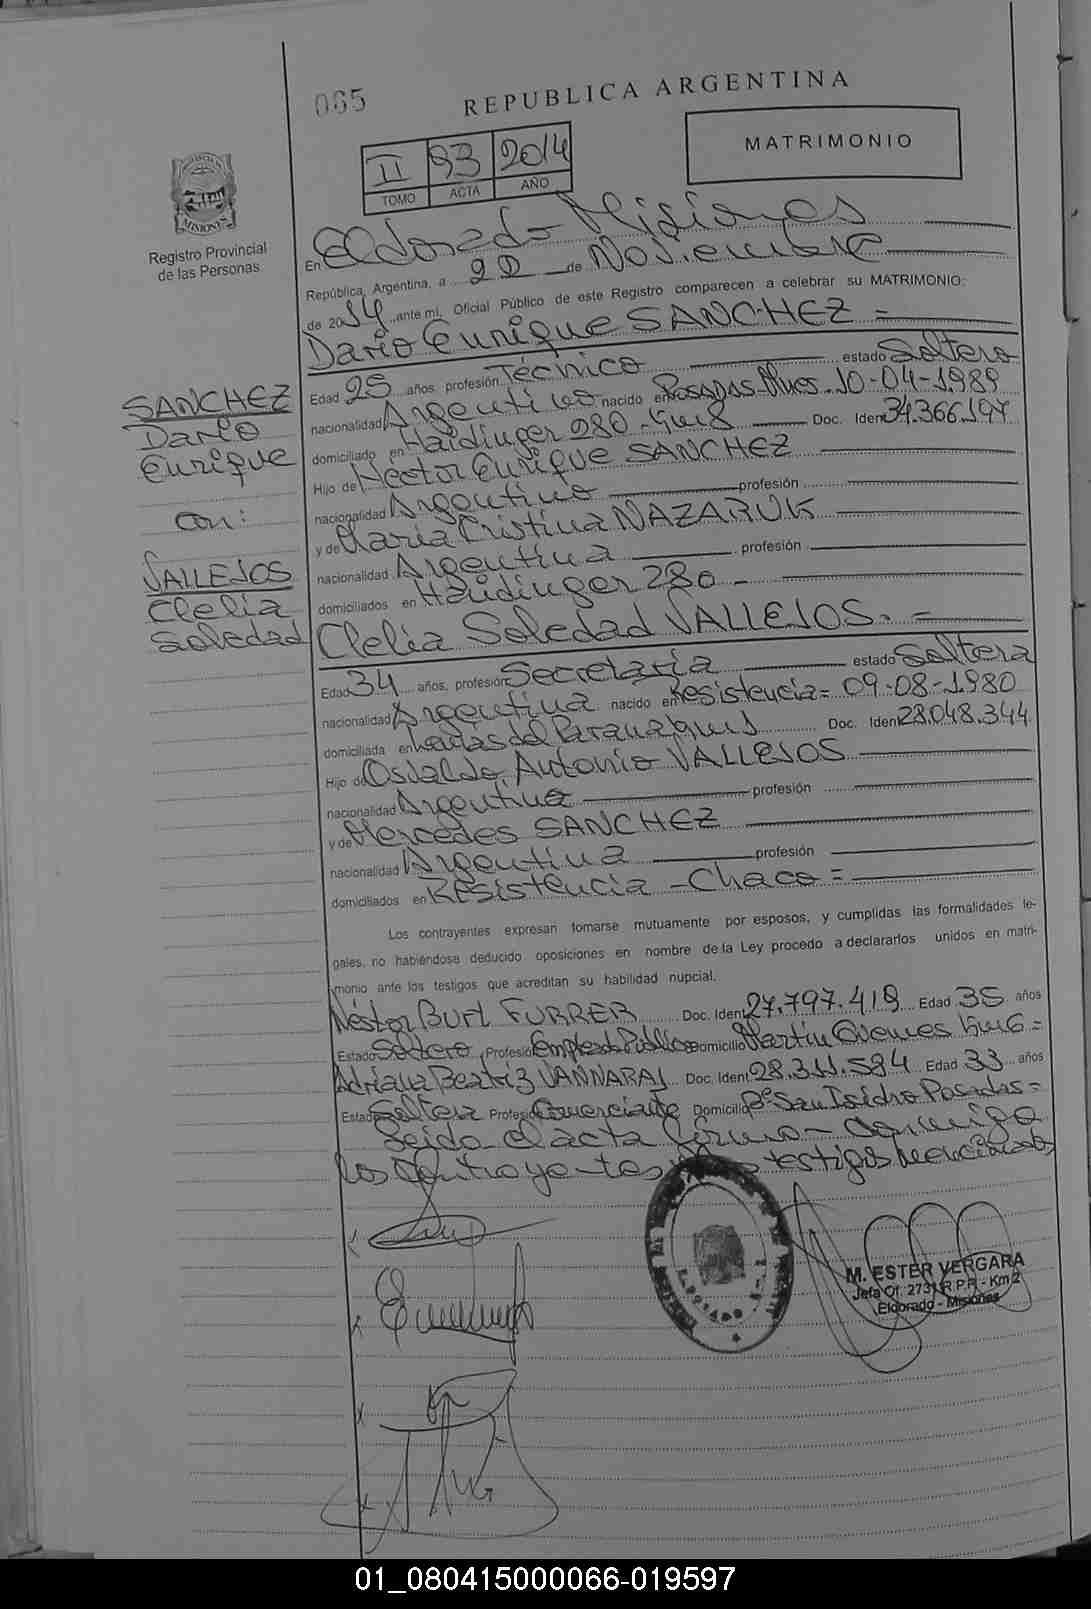 065
REPUBLICA ARGENTINA
MATRIMONIO
II 93 2014
TOMO ACTA AÑO
MISIONES
Registro Provincial
de las Personas
En Eldorado Misiones
República, Argentina, a 22 de Noviembre
de 2014 ante mi, Oficial Público de este Registro comparecen a celebrar su MATRIMONIO:
Dario Enrique SANCHEZ =
Edad 25 años, profesión Técnico estado Soltero
nacionalidad Argentino nacido en Posadas Mnes. 10-04-1989
domiciliado en Haidinger 280 - Km8 Doc. Ident 34.366.197
Hijo de Hector Enrique SANCHEZ
nacionalidad Argentino profesión
y de Maria Cristina NAZARUK
nacionalidad Argentina profesión
domiciliados en Haidinger 280 -
Clelia Soledad VALLEJOS. =
Edad 34 años, profesión Secretaria estado Soltera
nacionalidad Argentina nacido en Resistencia = 09-08-1980
domiciliada en del Parana Doc. Iden 28.048.344
Hijo de Osvaldo Antonio VALLEJOS
nacionalidad Argentino profesión
y de Mercedes SANCHEZ
nacionalidad Argentina profesión
domiciliados en Resistencia - Chaco =
SANCHEZ
Dario
Enrique
con:
VALLEJOS
Clelia
Soledad
Los contrayentes expresan tomarse mutuamente por esposos, y cumplidas las formalidades le-
gales, no habiéndose deducido oposiciones en nombre de la Ley procedo a declararlos unidos en matri-
monio ante los testigos que acreditan su habilidad nupcial.
Néstor Burt FURRER Doc. Ident 27.797.419 Edad 35 años
Estado Soltero Profesió Empleado Público Domicilio Martin Km6 =
Adriana Beatriz Doc. Ident 28.311.584 Edad 33 años
Estado Soltera Profesió Comerciante Domicilio Bº San Isidro Posadas =
Leida el acta firman conmigo
los contrayentes testigos mencionados
M. ESTER VERGARA
Jefa Of. 273 R.P.P. - Km 2
Eldorado - Misiones
01_080415000066-019597